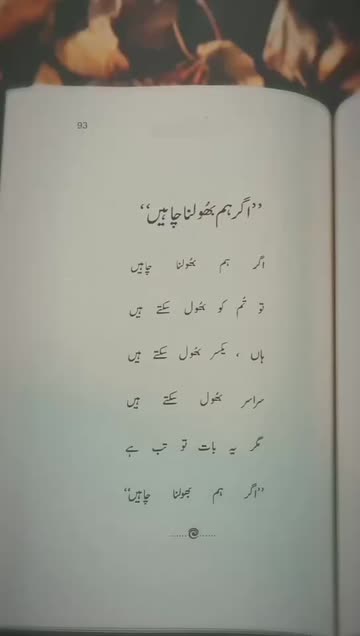 93
”اگر ہم بھُولنا چاہیں“
اگر ہم بھُولنا چاہیں
تو تُم کو بھُول سکتے ہیں
ہاں ، یکسر بھُول سکتے ہیں
سراسر بھُول سکتے ہیں
مگر یہ بات تو تب ہے
”اگر ہم بھولنا چاہیں“